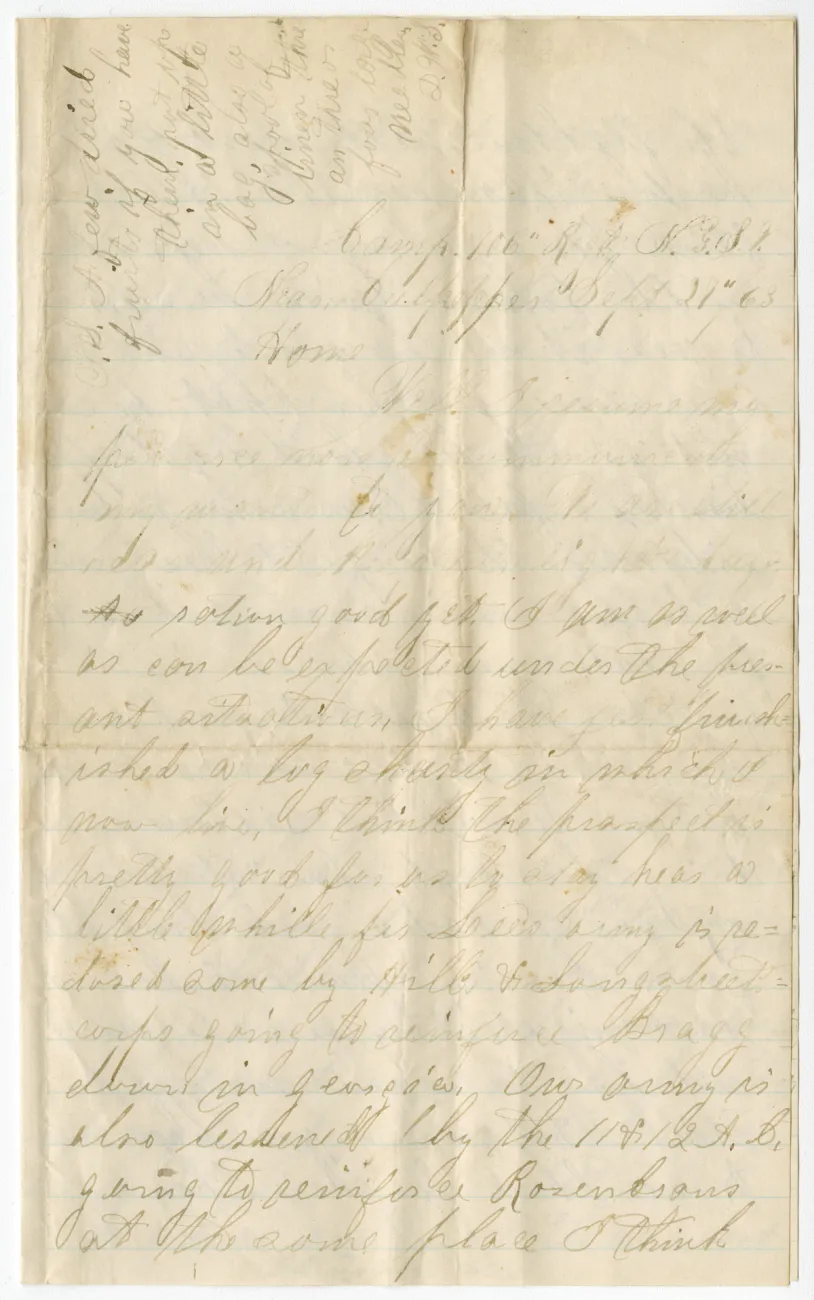 P.S. A few dried
fruits if you have
them, put up
in a little
bag, also a
spool of
linen
an three
four
needles
D. W. S.
Camp. 106" R N. Y. S. V.
Near Culpepper Sept 29" 63
Home
Well I resume my
pen once more to communicate
my to you
and
so action good yet. I am as well
as can be expected under the pres-
ant situations, I have just finish-
ished a log shanty in which I
now live, I think the prospect is
pretty good for us to stay hear a
little while, for Lees army is re=
dused some by Hills & Longstreets=
corps going to reinforce Bragg
down in georgia. Our army is
also lessened by the 11 & 12 A. C.
going to reinforce Rosenbrans
at the same place I think